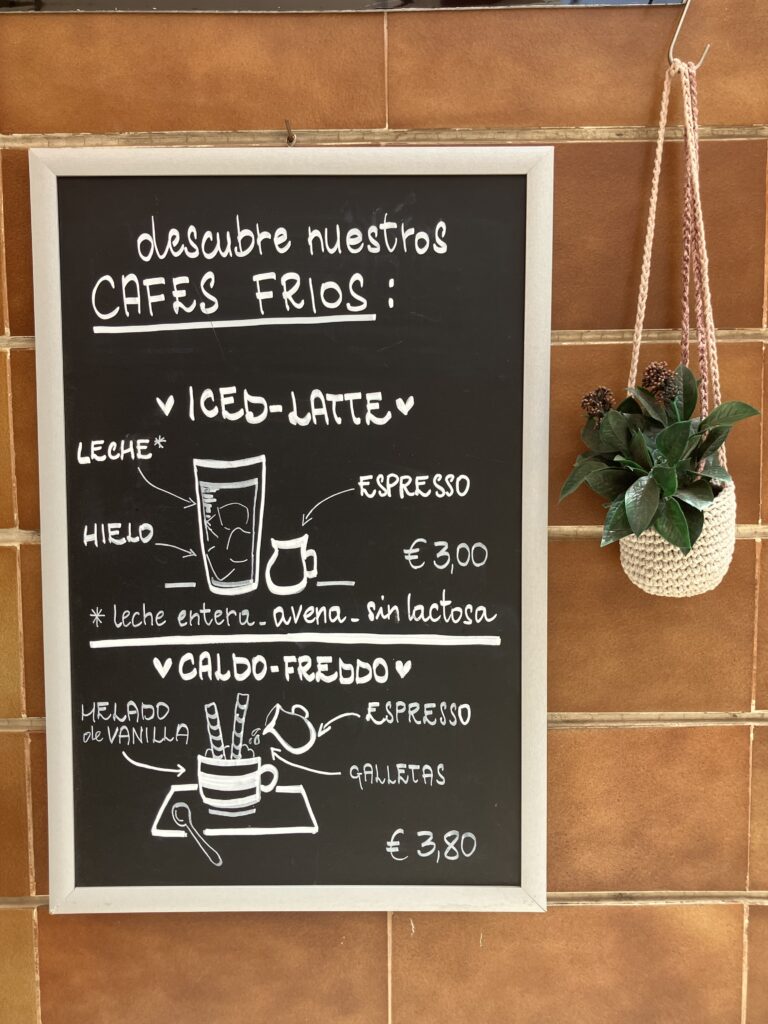 descubre nuestros
CAFES FRIOS :
♥ ICED-LATTE ♥
LECHE*
ESPRESSO
HIELO
€ 3,00
* leche entera - avena - sin lactosa
♥ CALDO-FREDDO ♥
HELADO
de VANILLA
ESPRESSO
GALLETAS
€ 3,80